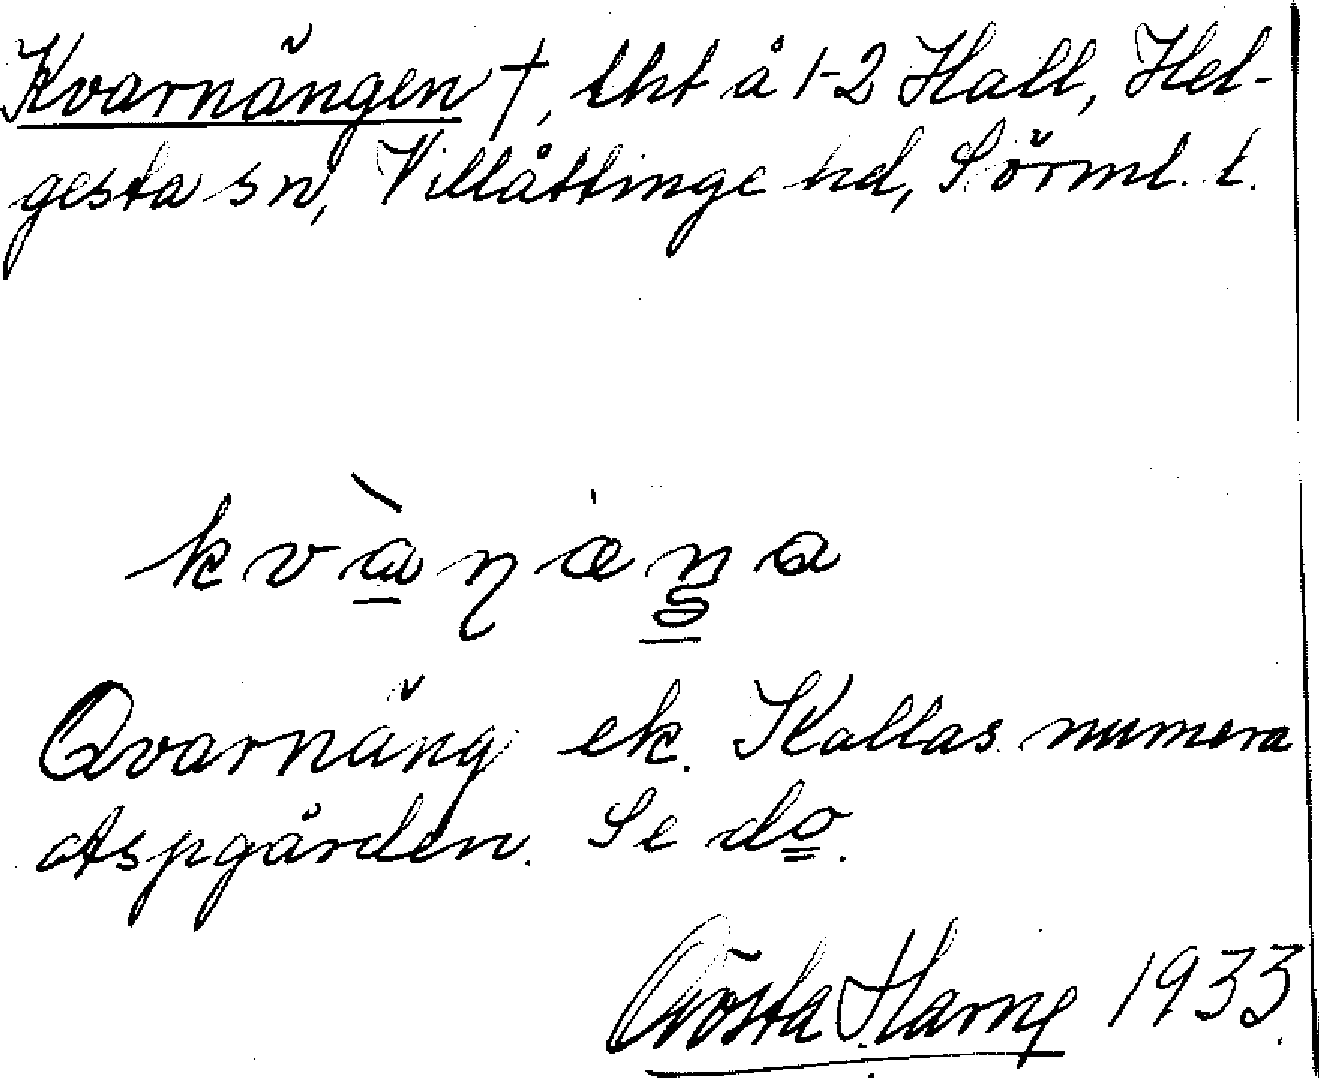 Kvarnängen †, lht å 1-2 Hall, Hel-
gesta sn, Villåttinge hd, Sörml. l.
kvànæŋa
Qvarnäng ek. Kallas numera
Aspgården. Se do.
Gösta Harne 1933.